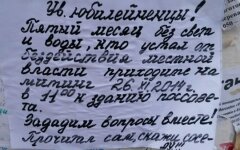 Ув. юбилейненцы!
Пятый месяц без света
и воды, кто устал от
бездействия местной
власти приходите на
митинг 26.XI.2014г.
в 11 00 к зданию поссове-
та.
Зададим вопросы вместе!
Прочитал сам, скажи